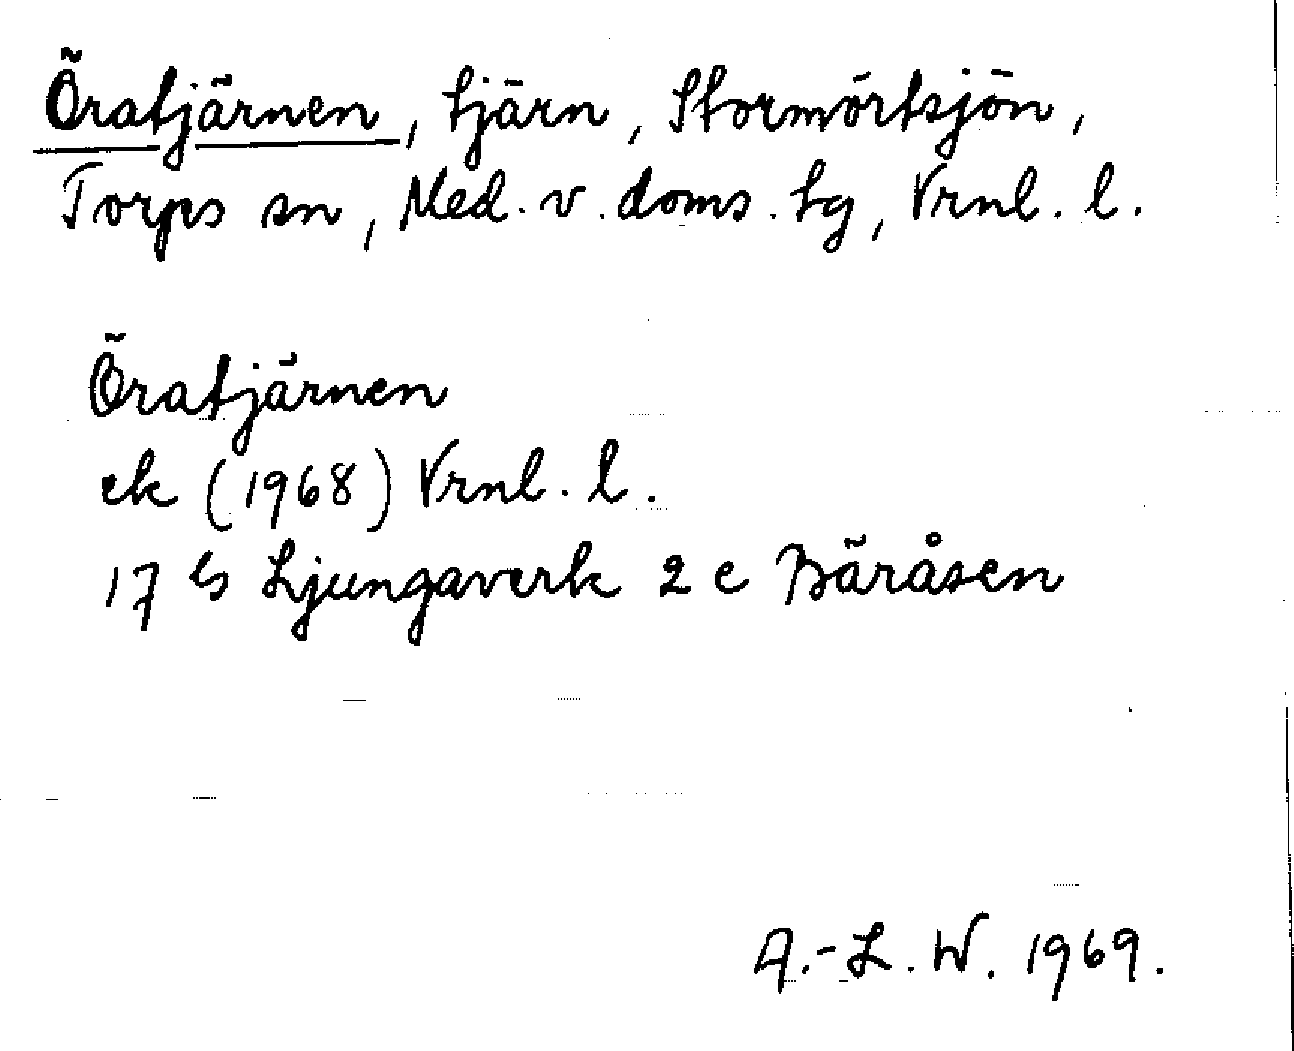 Öratjärnen, tjärn, Stormörtsjön,
Torps sn, Med. v. doms. tg, Vrnl. l.
Öratjärnen
ek (1968) Vrnl. l.
17 G Ljungaverk 2 c Bäråsen
A.-L. W. 1969.